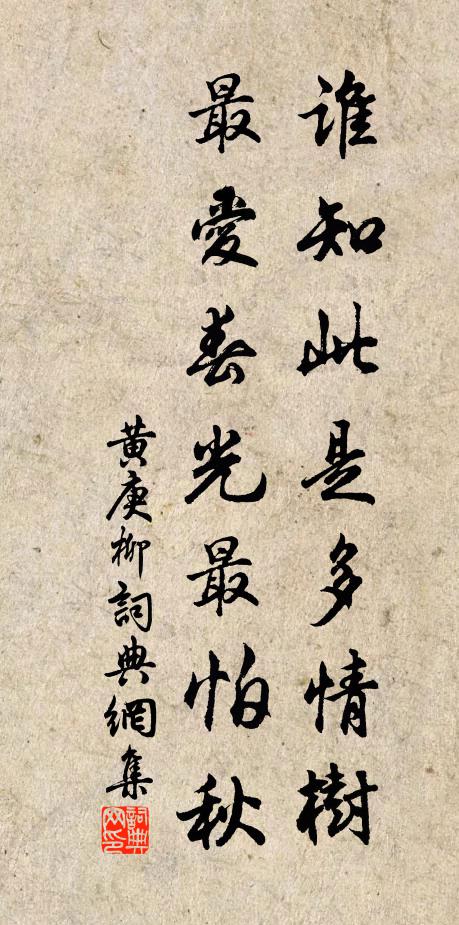 誰知此是多情樹
最愛春光最怕秋
黃庚柳詞典網集
詞典
网印